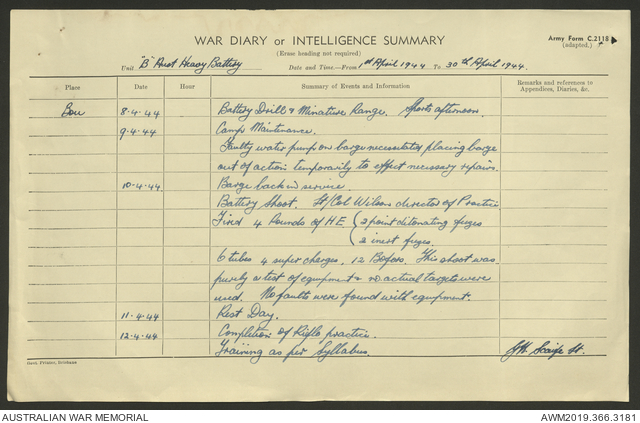 WAR DIARY or INTELLIGENCE SUMMARY
(Erase heading not required)
Army Form C.2118
(adapted.)
Unit "B" Aust Heavy Battery Date and Time.—From 1st April 1944 To 30th April 1944.
Place Date Hour Summary of Events and Information Remarks and references to Appendices, Diaries, &c.
8-4-44 Battery Drill & Minature Range. Sports afternoon.
9-4-44 Camp Maintenance.
Faulty water pump on barge necessitated placing barge
out of action temporarily to effect necessary repairs.
10-4-44 Barge back in service.
Battery Shoot. Lt/Col Wilson director of Practice
Fired 4 Rounds of HE { 2 point detonating fuzes
2 inert fuzes.
6 tubes 4 super charges. 12 Bofors. This shoot was
purely a test of equipment & no actual targets were
used. No faults were found with equipment.
11-4-44 Rest Day.
12-4-44 Completion of Rifle practice.
Training as per Syllabus. Lt.
Govt. Printer, Brisbane
AUSTRALIAN WAR MEMORIAL AWM2019.366.3181